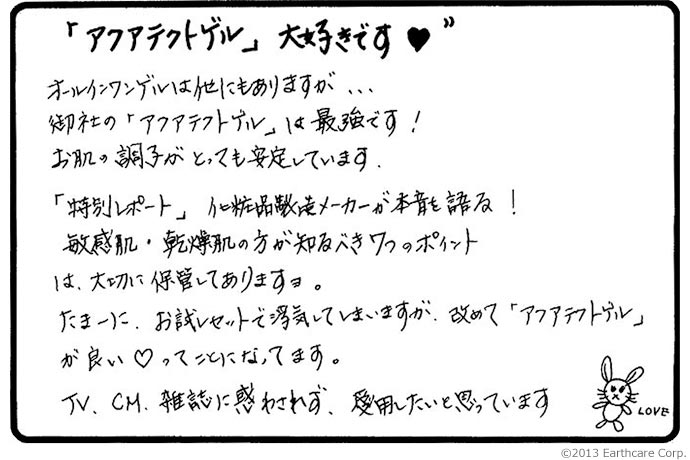 「アクアテクトゲル」大好きです♥”
オールインワンゲルは他にもありますが...
御社の「アクアテクトゲル」は最強です!
お肌の調子がとっても安定しています.
「特別レポート」化粧品製造メーカーが本音を語る!
敏感肌・乾燥肌の方が知るべき7つのポイント
は、大切に保管してありますョ。
たまーに、お試しセットで浮気してしまいますが、改めて「アクアテクトゲル」
が良い♡ってことになってます。
TV、CM、雑誌に惑わされず、愛用したいと思っています
LOVE
©2013 Earthcare Corp.